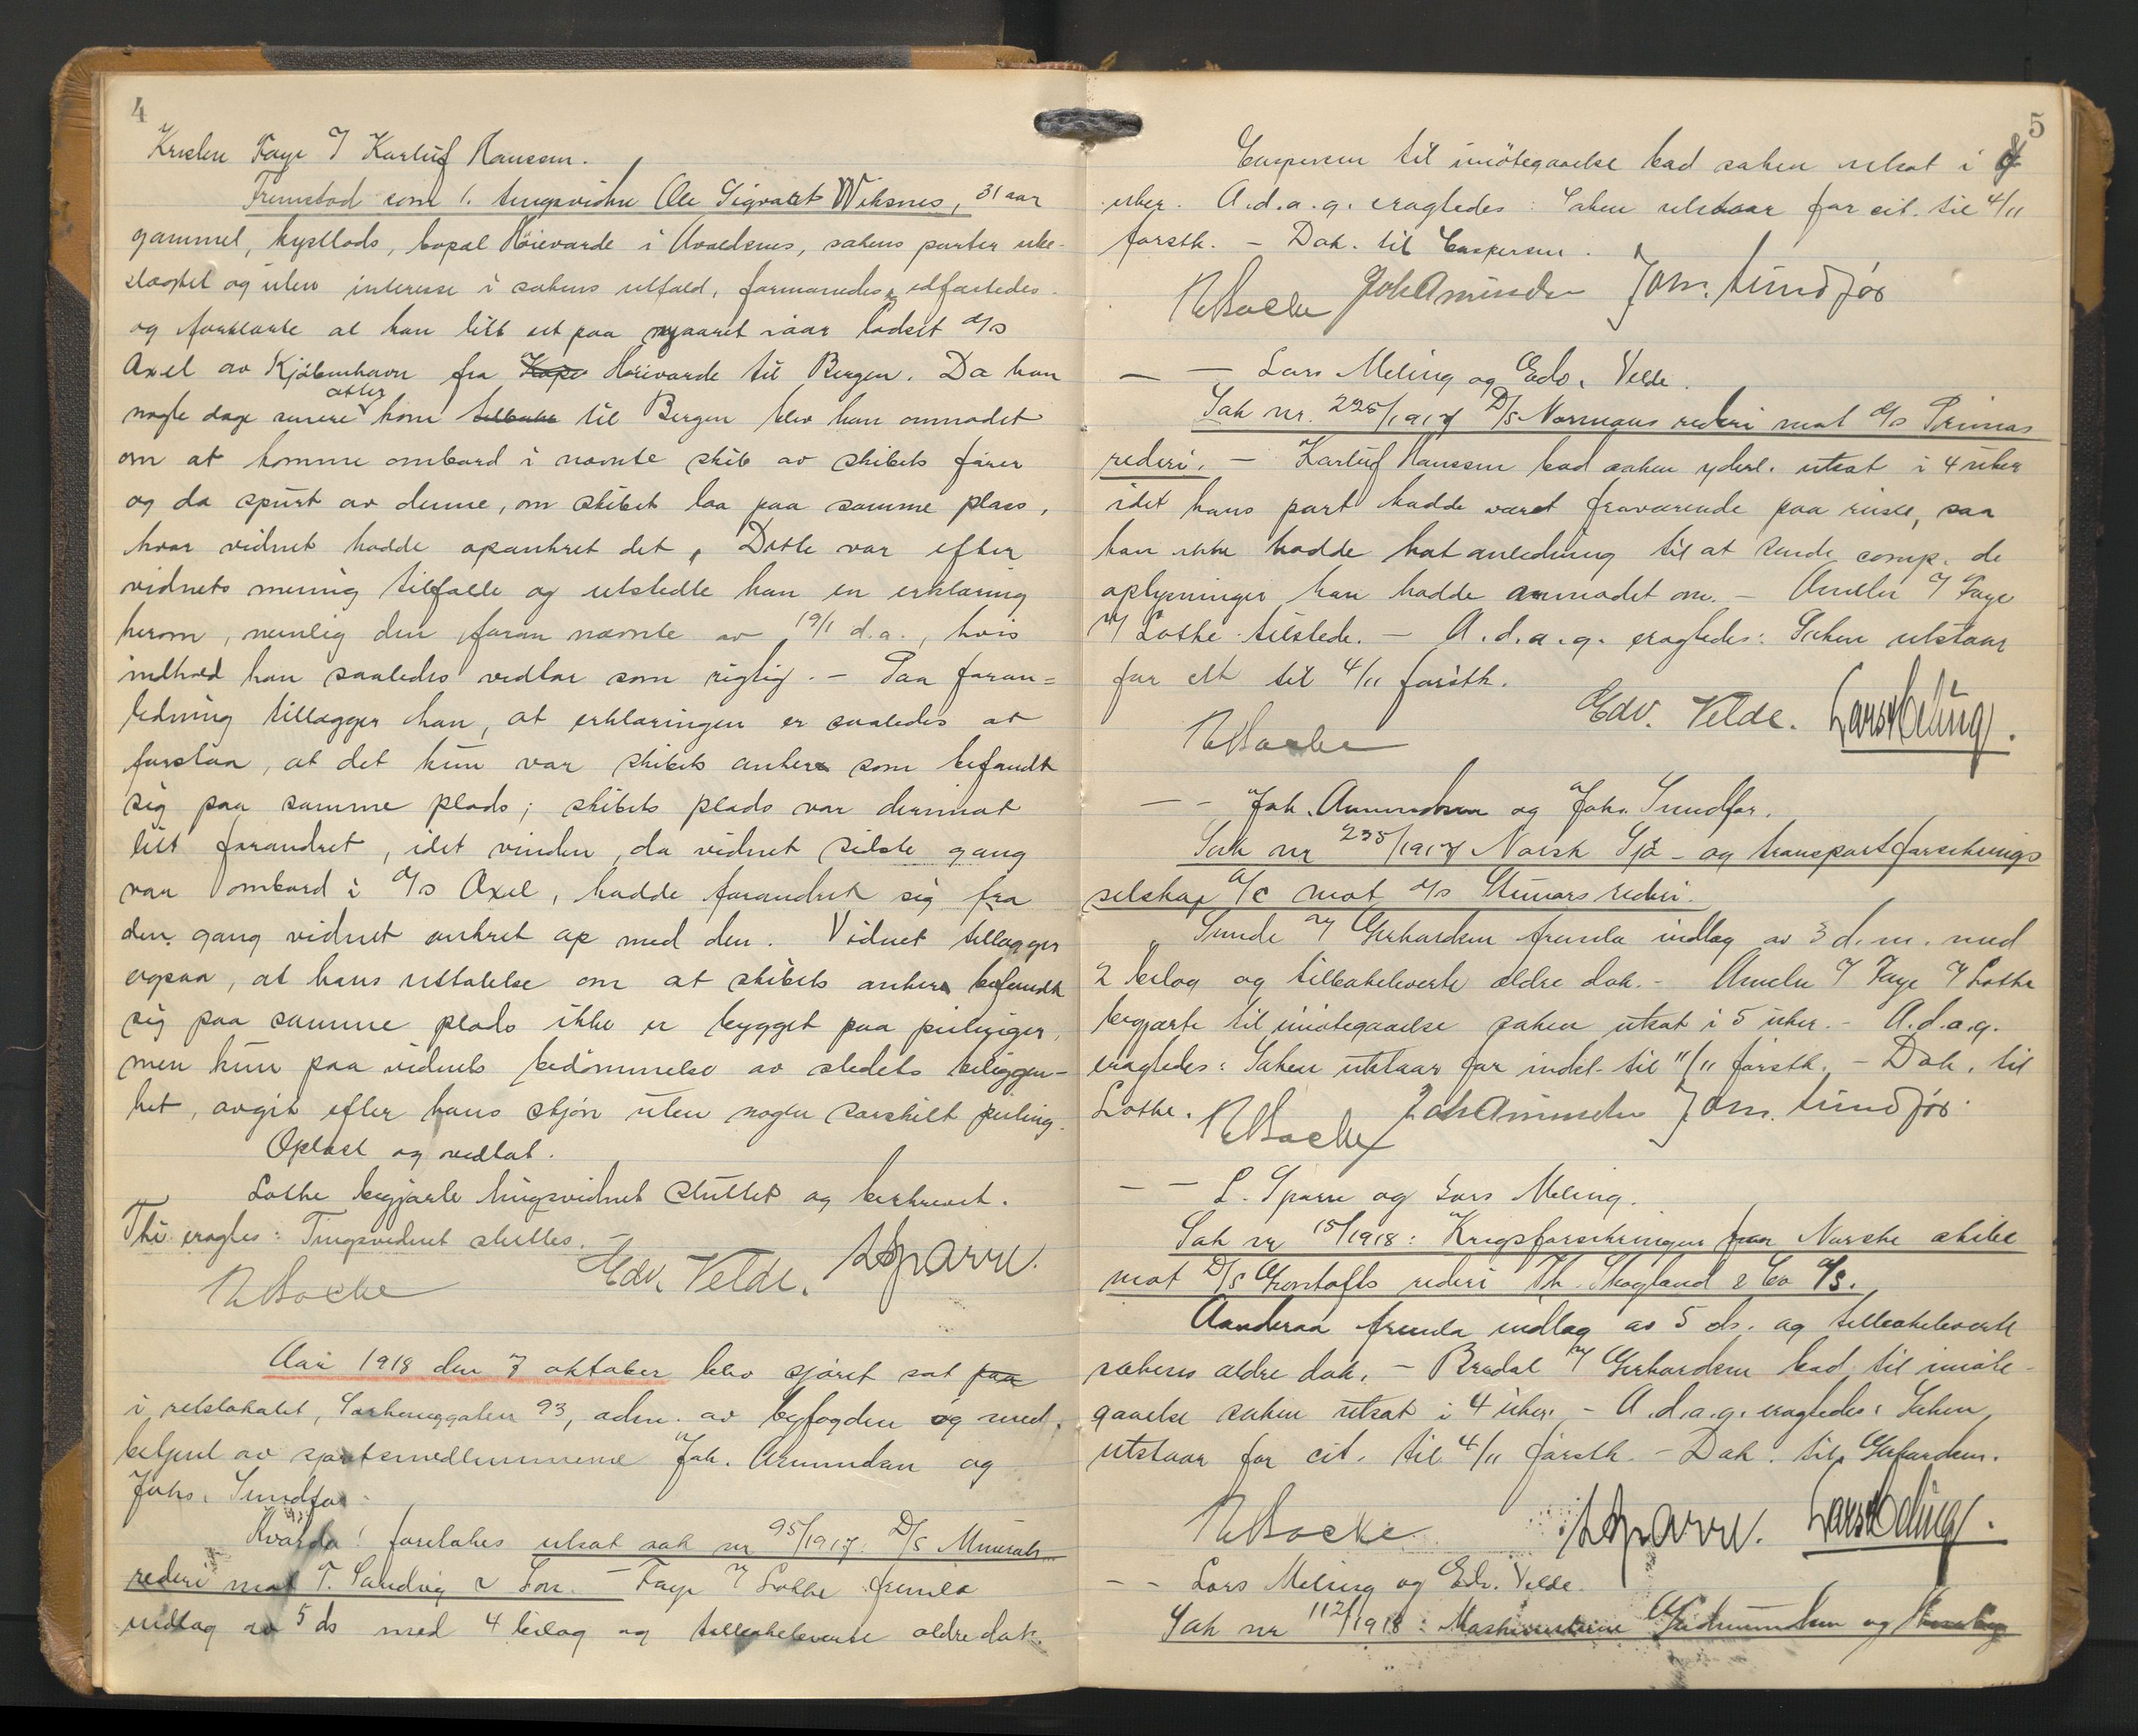 4
Kristen Faye f Karluf Hanssen.
Fremstod som 1. tingsvidne Ole Sigvart Wiksnes, 31 aar
gammel, kystlods, bopæl Höievarde i Avaldsnes, sakens parter ube-
slægtet og uten interesse i sakens utfald, formanedes, edfæstedes
og forklarte at han litt ut paa nyaaret iaar lodset d/s
Axel av Kjöbenhavn fra Höievarde til Bergen. Da han
nogle dage senere atter kom til Bergen blev han anmodet
om at komme ombord i nævnte skib av skibets förer
og da spurt av denne, om skibet laa paa samme plass,
hvor vidnet hadde opankret det. Dette var efter
vidnets mening tilfælle og utstedte han en erklæring
herom, nemlig den foran nævnte av 19/1 d.a., hvis
indhold han saaledes vedtar som rigtig. - Paa foran=
ledning tillægger han, at erklæringen er saaledes at
forstaa, at det kun var skibets anker som befandt
sig paa samme plads; skibets plads var derimot
litt forandret, idet vinden, da vidnet sidste gang
var ombord i d/s Axel, hadde forandret sig fra
den gang vidnet ankret op med den. Vidnet tillægger
ogsaa, at hans uttalelse om at skibets anker befandt
sig paa samme plads ikke er bygget paa peilinger,
men kun paa vidnets bedömmelse av stedets beliggen-
het, avgit efter hans skjön uten nogen særskilt peiling.
Oplæst og vedtat.
Lothe begjærte tingsvidnet sluttet og beskrevet.
Thi eragtes: Tingsvidnet sluttes. -
Edv. Velde. L Sparre.
Aar 1918 den 7 oktober blev sjöret sat
i retslokalet, 93, adm. av byfogden og med-
betjent av sjöretsmedlemmerne Joh. Amundsen og
Johs. Sundför.
Hvorda! foretokes utsat sak nr 95/1917. D/S Minerals
rederi mot T. Sandvig & Son. - Faye f Lothe fremla
indlæg av 5 ds med 4 bilag og tilbakeleverte ældre dok.
5
Caspersen til imötegaaelse bad saken utsat i 4
uker. A.d.a.g. eragtedes: Saken utstaar for cit. til 4/11
förstk. - Dok. til Caspersen.
Joh Amundsen Johs. Sundför
- - Lars Meling og Edv. Velde.
Sak nr. 225/1917 D/S Normans rederi mot d/s Primas
rederi. - Karluf Hanssen bad saken yderl. utsat i 4 uker
idet hans part hadde været fraværende paa reise, saa
han ikke hadde hat anledning til at sende comp. de
oplysninger han hadde anmodet om. - Ameln f Faye
f Lothe tilstede. - A.d.a.g. eragtedes: Saken utstaar
for alt til 4/11 förstk.
Edv. Velde. Lars Meling.
- - Joh. Amundsen og Johs. Sundför.
Sak nr 235/1917 Norsk Sjö- og transportforsikrings
selskap a/c mot d/s Steinars rederi.
Sunde f Gerhardsen fremla indlæg av 3 d.m. med
2 bilag og tilbakeleverte ældre dok. - Ameln f Faye f Lothe
begjærte til imötegaaelse saken utsat i 5 uker. - A.d.a.g.
eragtedes: Saken utstaar for indst. til 11/11 förstk. - Dok. til
Lothe.
Joh Amundsen Johs. Sundför.
- - L. Sparre og Lars Meling.
Sak nr 15/1918: Krigsforsikringen for Norske skibe
mot D/S Grontofts rederi Th. Skogland & Co A/S.
Aanderaa fremla indlæg av 5 ds. og tilbakeleverte
sakens ældre dok. - Bredal f Gerhardsen bad til imöte-
gaaelse saken utsat i 4 uker. - A.d.a.g. eragtedes: Saken
utstaar for cit. til 4/11 förstk. - Dok. til Gerhardsen.
L Sparre. Lars Meling.
- - Lars Meling og Edv. Velde.
Sak nr 112/1918: Maskinisterne Gudmundsen og